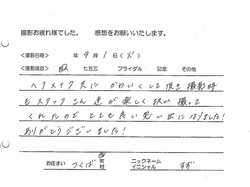 撮影お疲れ様でした。 感想をお願いいたします。
<撮影日時> 年 9月 1日(火)
<撮影項目> 成人 七五三 ブライダル 記念 その他
ヘアメイク共に かわいくして頂き 撮影時
もスタッフさん達が楽しく 撮って
くれたのでとても良い思い出になりました!
ありがとうございました!
お住まい つくば 市 町 村 ニックネーム イニシャル すず